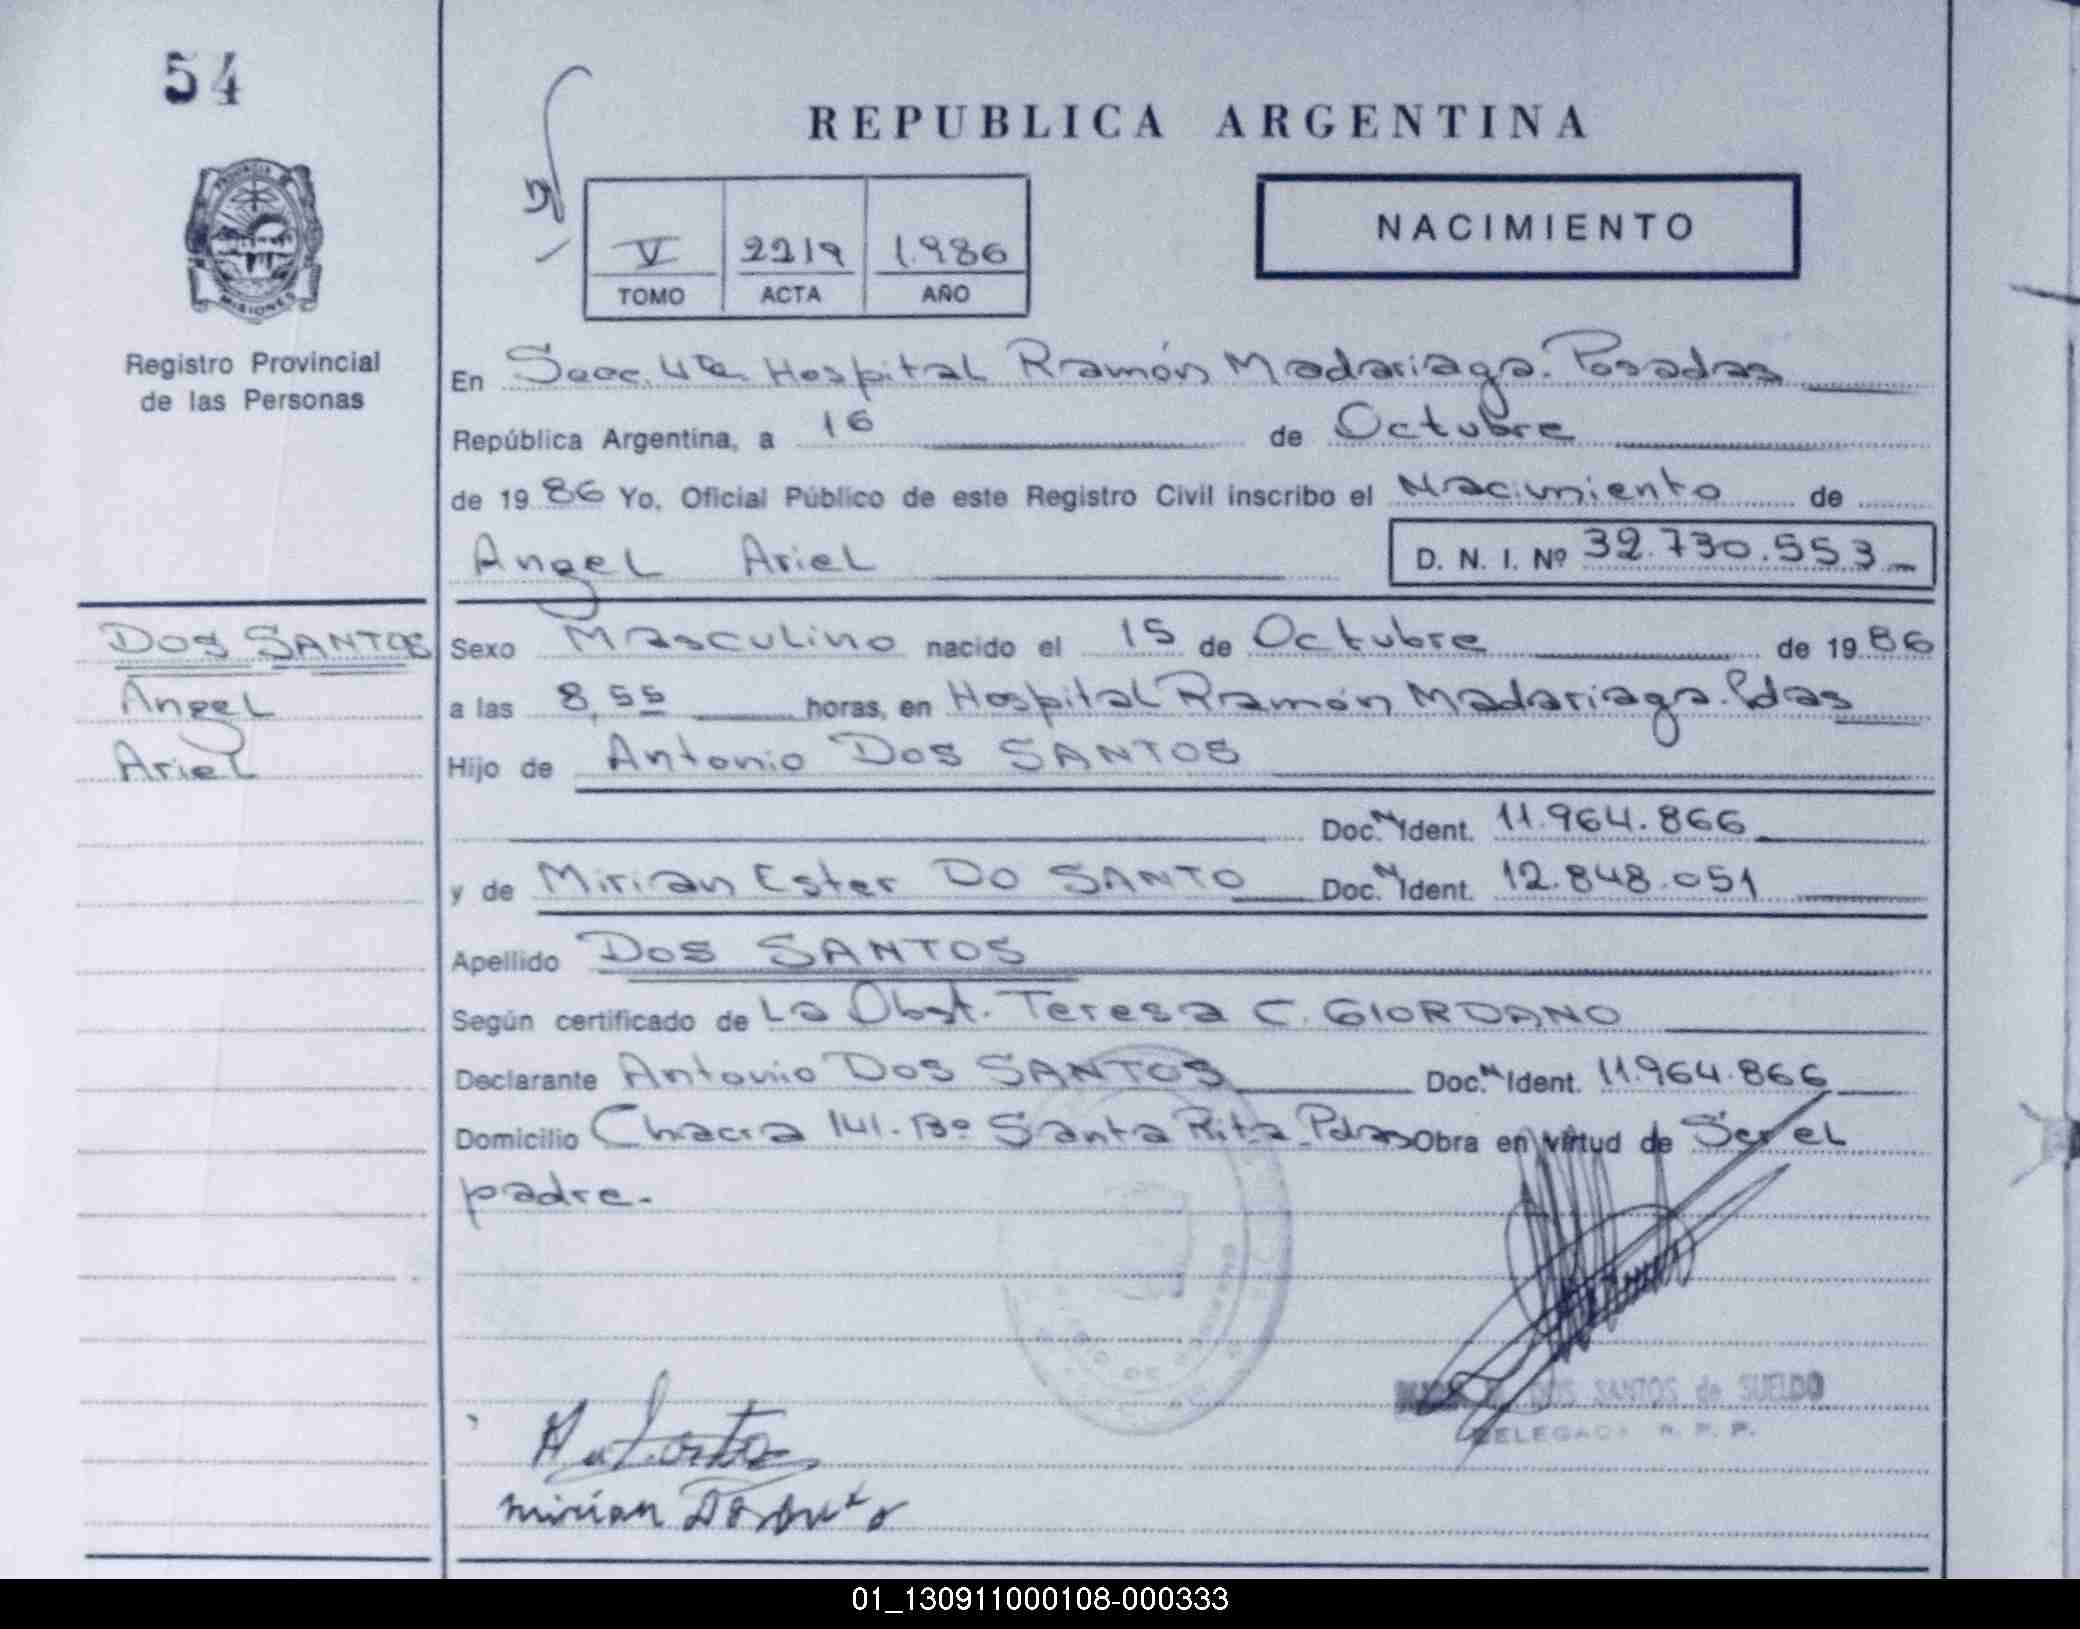 54
REPUBLICA ARGENTINA
NACIMIENTO
V 2219 1.986
TOMO ACTA AÑO
PROVINCIA DE
MISIONES
Registro Provincial
de las Personas
En Secc. 4ta. Hospital Ramón Madariaga. Posadas
República Argentina, a 16 de Octubre
de 19 86 Yo, Oficial Público de este Registro Civil inscribo el Nacimiento de
Angel Ariel D. N. I. Nº 32.730.553
DOS SANTOS
Angel
Ariel
Sexo Masculino nacido el 15 de Octubre de 19 86
a las 8,55 horas, en Hospital Ramón Madariaga. Pdas
Hijo de Antonio Dos SANTOS
Doc. N Ident. 11.964.866
y de Mirian Ester DO SANTO Doc. N Ident. 12.848.051
Apellido Dos SANTOS
Según certificado de La Obst. Teresa C. GIORDANO
Declarante Antonio Dos SANTOS Doc. N Ident. 11.964.866
Domicilio Chacra 141. Bº Santa Rita. Pdas Obra en virtud de Ser el
padre.
DOS SANTOS de SUELDO
DELEGADA R. P. P.
Mirian
01_130911000108-000333